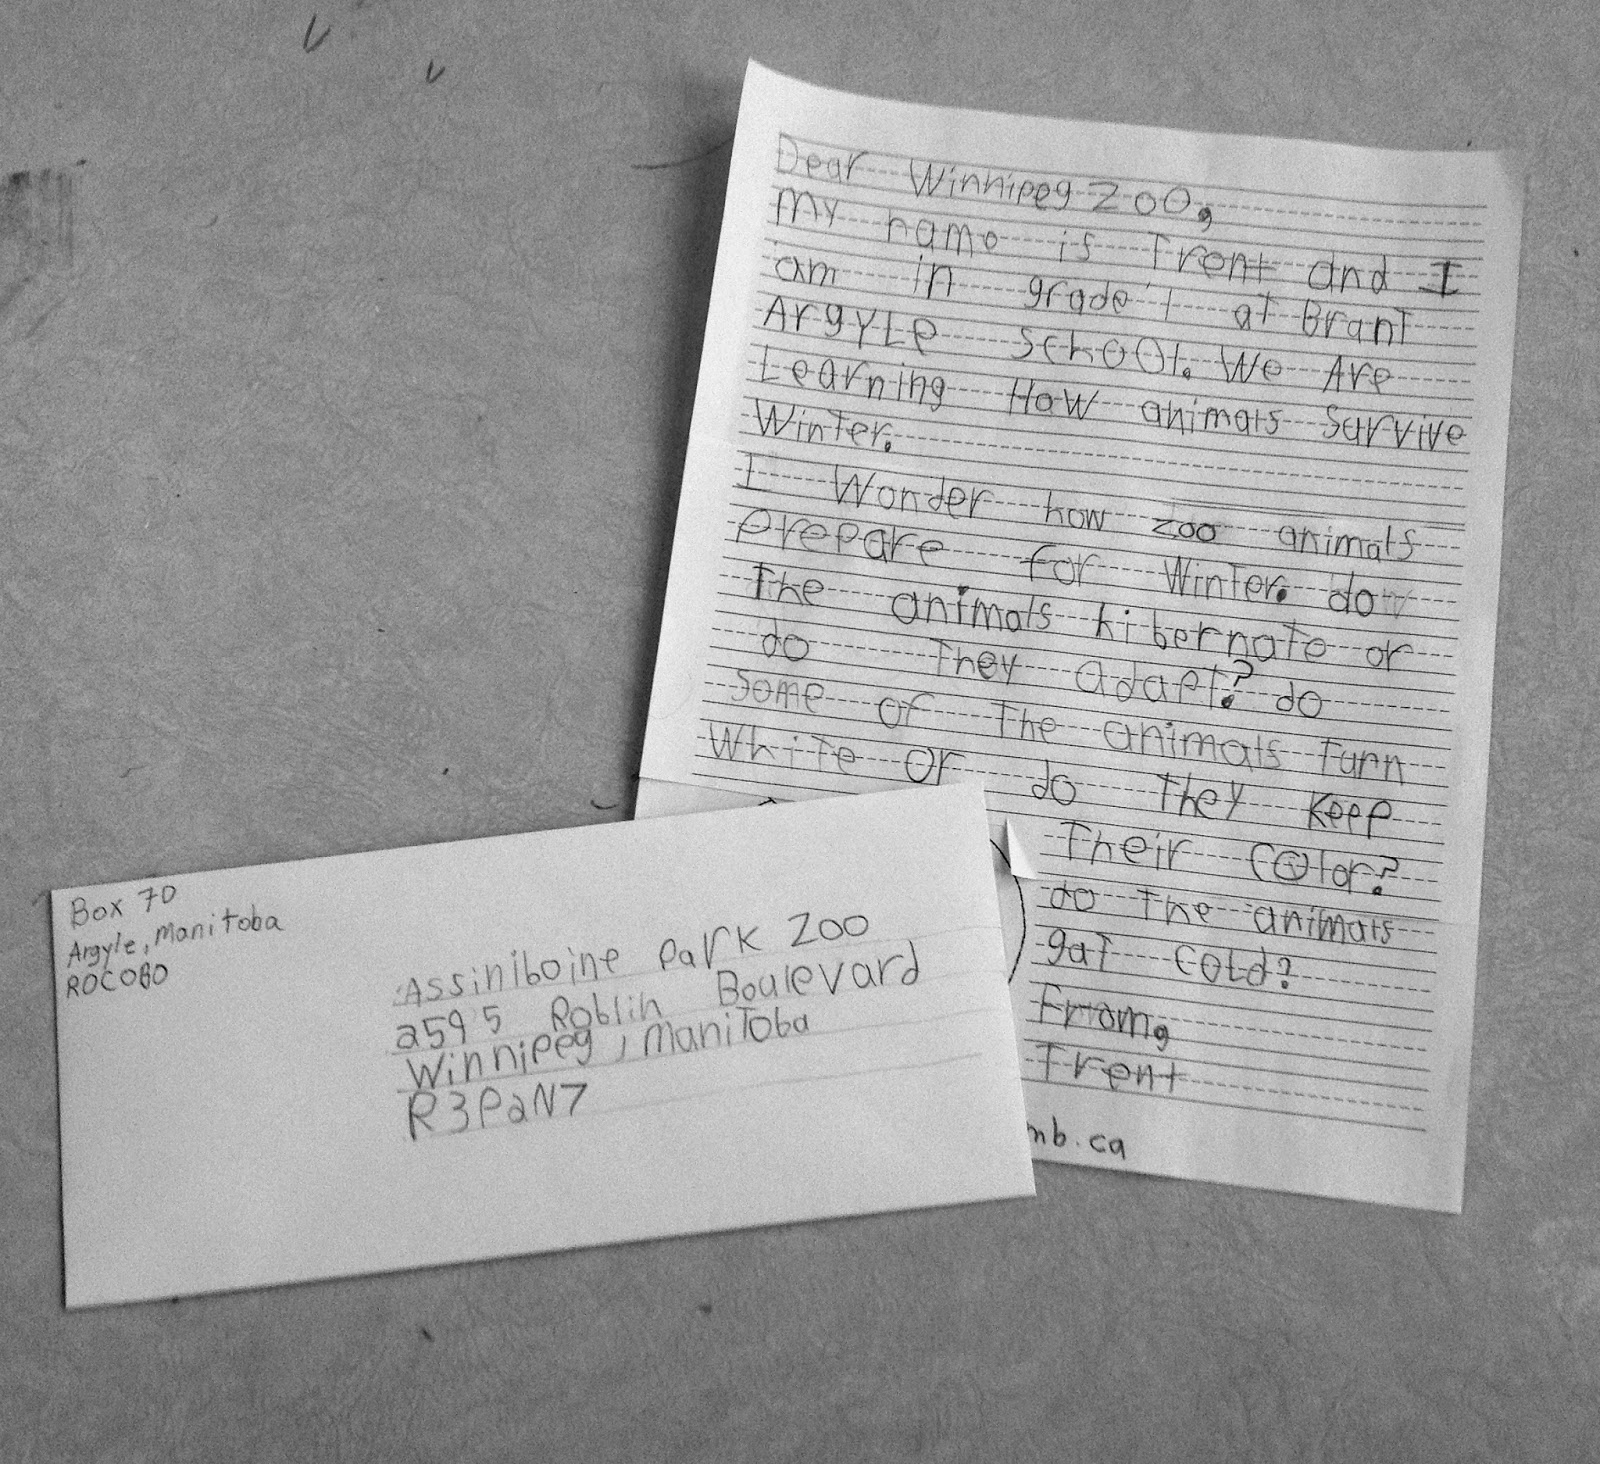 Dear Winnipeg Zoo,
My name is Trent and I
am in grade 1 at Brant
Argyle School. We Are
Learning How animals survive
Winter.
I Wonder how zoo animals
prepare for Winter. do
The animals hibernate or
do They adapt? do
some of The animals turn
White or do They Keep
Their Color?
do The animals
gat Cold?
From,
Trent
mb.ca
Box 70
Argyle, Manitoba
ROCOBO
Assiniboine Park Zoo
2595 Roblin Boulevard
Winnipeg, Manitoba
R3P2N7